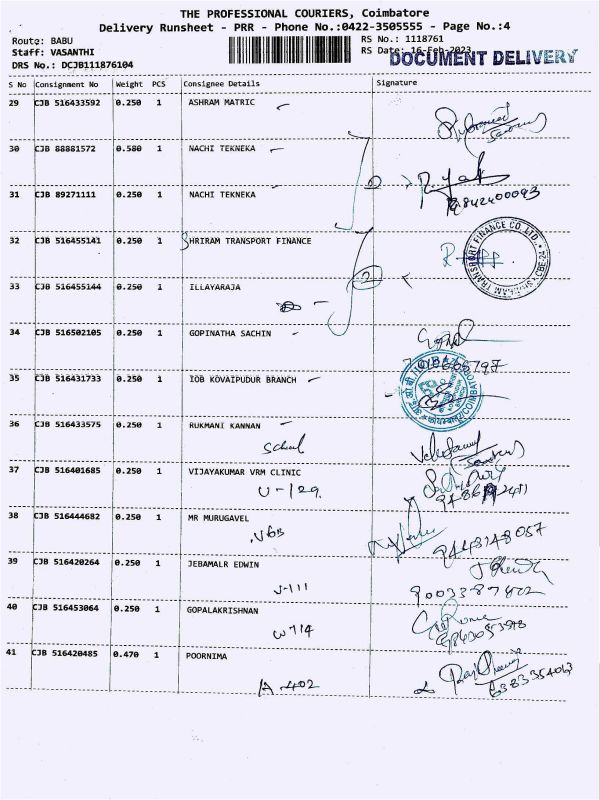 THE PROFESSIONAL COURIERS, Coimbatore
Delivery Runsheet - PRR - Phone No.:0422-3505555 - Page No.:4
Route: BABU RS No.: 1118761
Staff: VASANTHI RS Date: 16-Feb-2023
DOCUMENT DELIVERY
DRS No.: DCJB111876104
S No Consignment No Weight PCS Consignee Details Signature
29 CJB 516433592 0.250 1 ASHRAM MATRIC
30 CJB 88881572 0.580 1 NACHI TEKNEKA
31 CJB 89271111 0.250 1 NACHI TEKNEKA
9842400093
32 CJB 516455141 0.250 1 SHRIRAM TRANSPORT FINANCE
2
33 CJB 516455144 0.250 1 ILLAYARAJA
34 CJB 516502105 0.250 1 GOPINATHA SACHIN
35 CJB 516431733 0.250 1 IOB KOVAIPUDUR BRANCH
36 CJB 516433575 0.250 1 RUKMANI KANNAN
School
37 CJB 516401685 0.250 1 VIJAYAKUMAR VRM CLINIC
U-129
38 CJB 516444682 0.250 1 MR MURUGAVEL
V6B 9443148057
39 CJB 516420264 0.250 1 JEBAMALR EDWIN
J-111
40 CJB 516453064 0.250 1 GOPALAKRISHNAN
W714
41 CJB 516420485 0.470 1 POORNIMA
A-402 6383354063